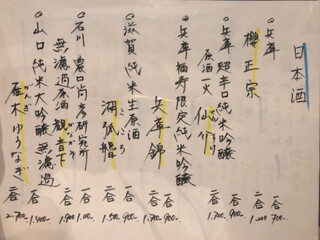 日本酒
◎兵庫
櫻正宗
一合 700-
二合 1.200
◎兵庫 超辛口純米吟醸
原酒一火 仙介
一合 900-
二合 1.700
◎兵庫 福寿 限定純米吟醸
兵庫錦
一合 900-
二合 1.700
◎滋賀 純米生原酒
湖弧艪
一合 900-
二合 1.500
◎石川 農口尚彦研究所
無濾過原酒 観音下
一合 1.00-
二合 1.900
◎山口 純米大吟醸 無濾過
雁木 ゆうなぎ
がんぎ
一合 1.400-
二合 2.700-